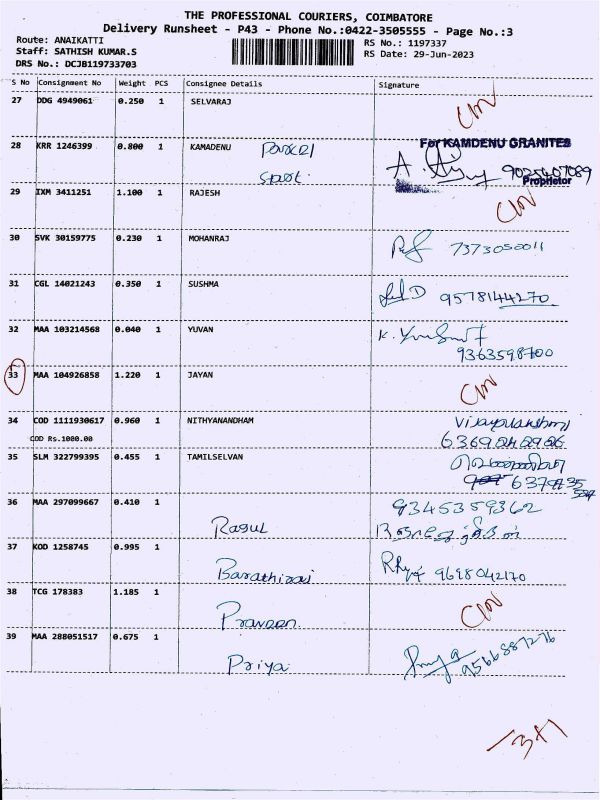 THE PROFESSIONAL COURIERS, COIMBATORE
Delivery Runsheet - P43 - Phone No.:0422-3505555 - Page No.:3
Route: ANAIKATTI
Staff: SATHISH KUMAR.S
DRS No.: DCJB119733703
RS No.: 1197337
RS Date: 29-Jun-2023
S No Consignment No Weight PCS Consignee Details Signature
27 DDG 4949061 0.250 1 SELVARAJ
28 KRR 1246399 0.800 1 KAMADENU Parcel For KAMDENU GRANITES
Spot. 9025407089
Proprietor
29 IXM 3411251 1.100 1 RAJESH
30 SVK 30159775 0.230 1 MOHANRAJ 7373050011
31 CGL 14021243 0.350 1 SUSHMA 9578144270
32 MAA 103214568 0.040 1 YUVAN
9363598700
33 MAA 104926858 1.220 1 JAYAN
34 COD 1111930617 0.960 1 NITHYANANDHAM Vijayalakshmi
COD Rs.1000.00
35 SLM 322799395 0.455 1 TAMILSELVAN
36 MAA 297099667 0.410 1 9345359362
Rasul
37 KOD 1258745 0.995 1
Barathiraj 9698042170
38 TCG 178383 1.185 1
Praveen
39 MAA 288051517 0.675 1 Priya 9566887276
Priya